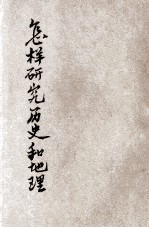 怎样研究历史和地理